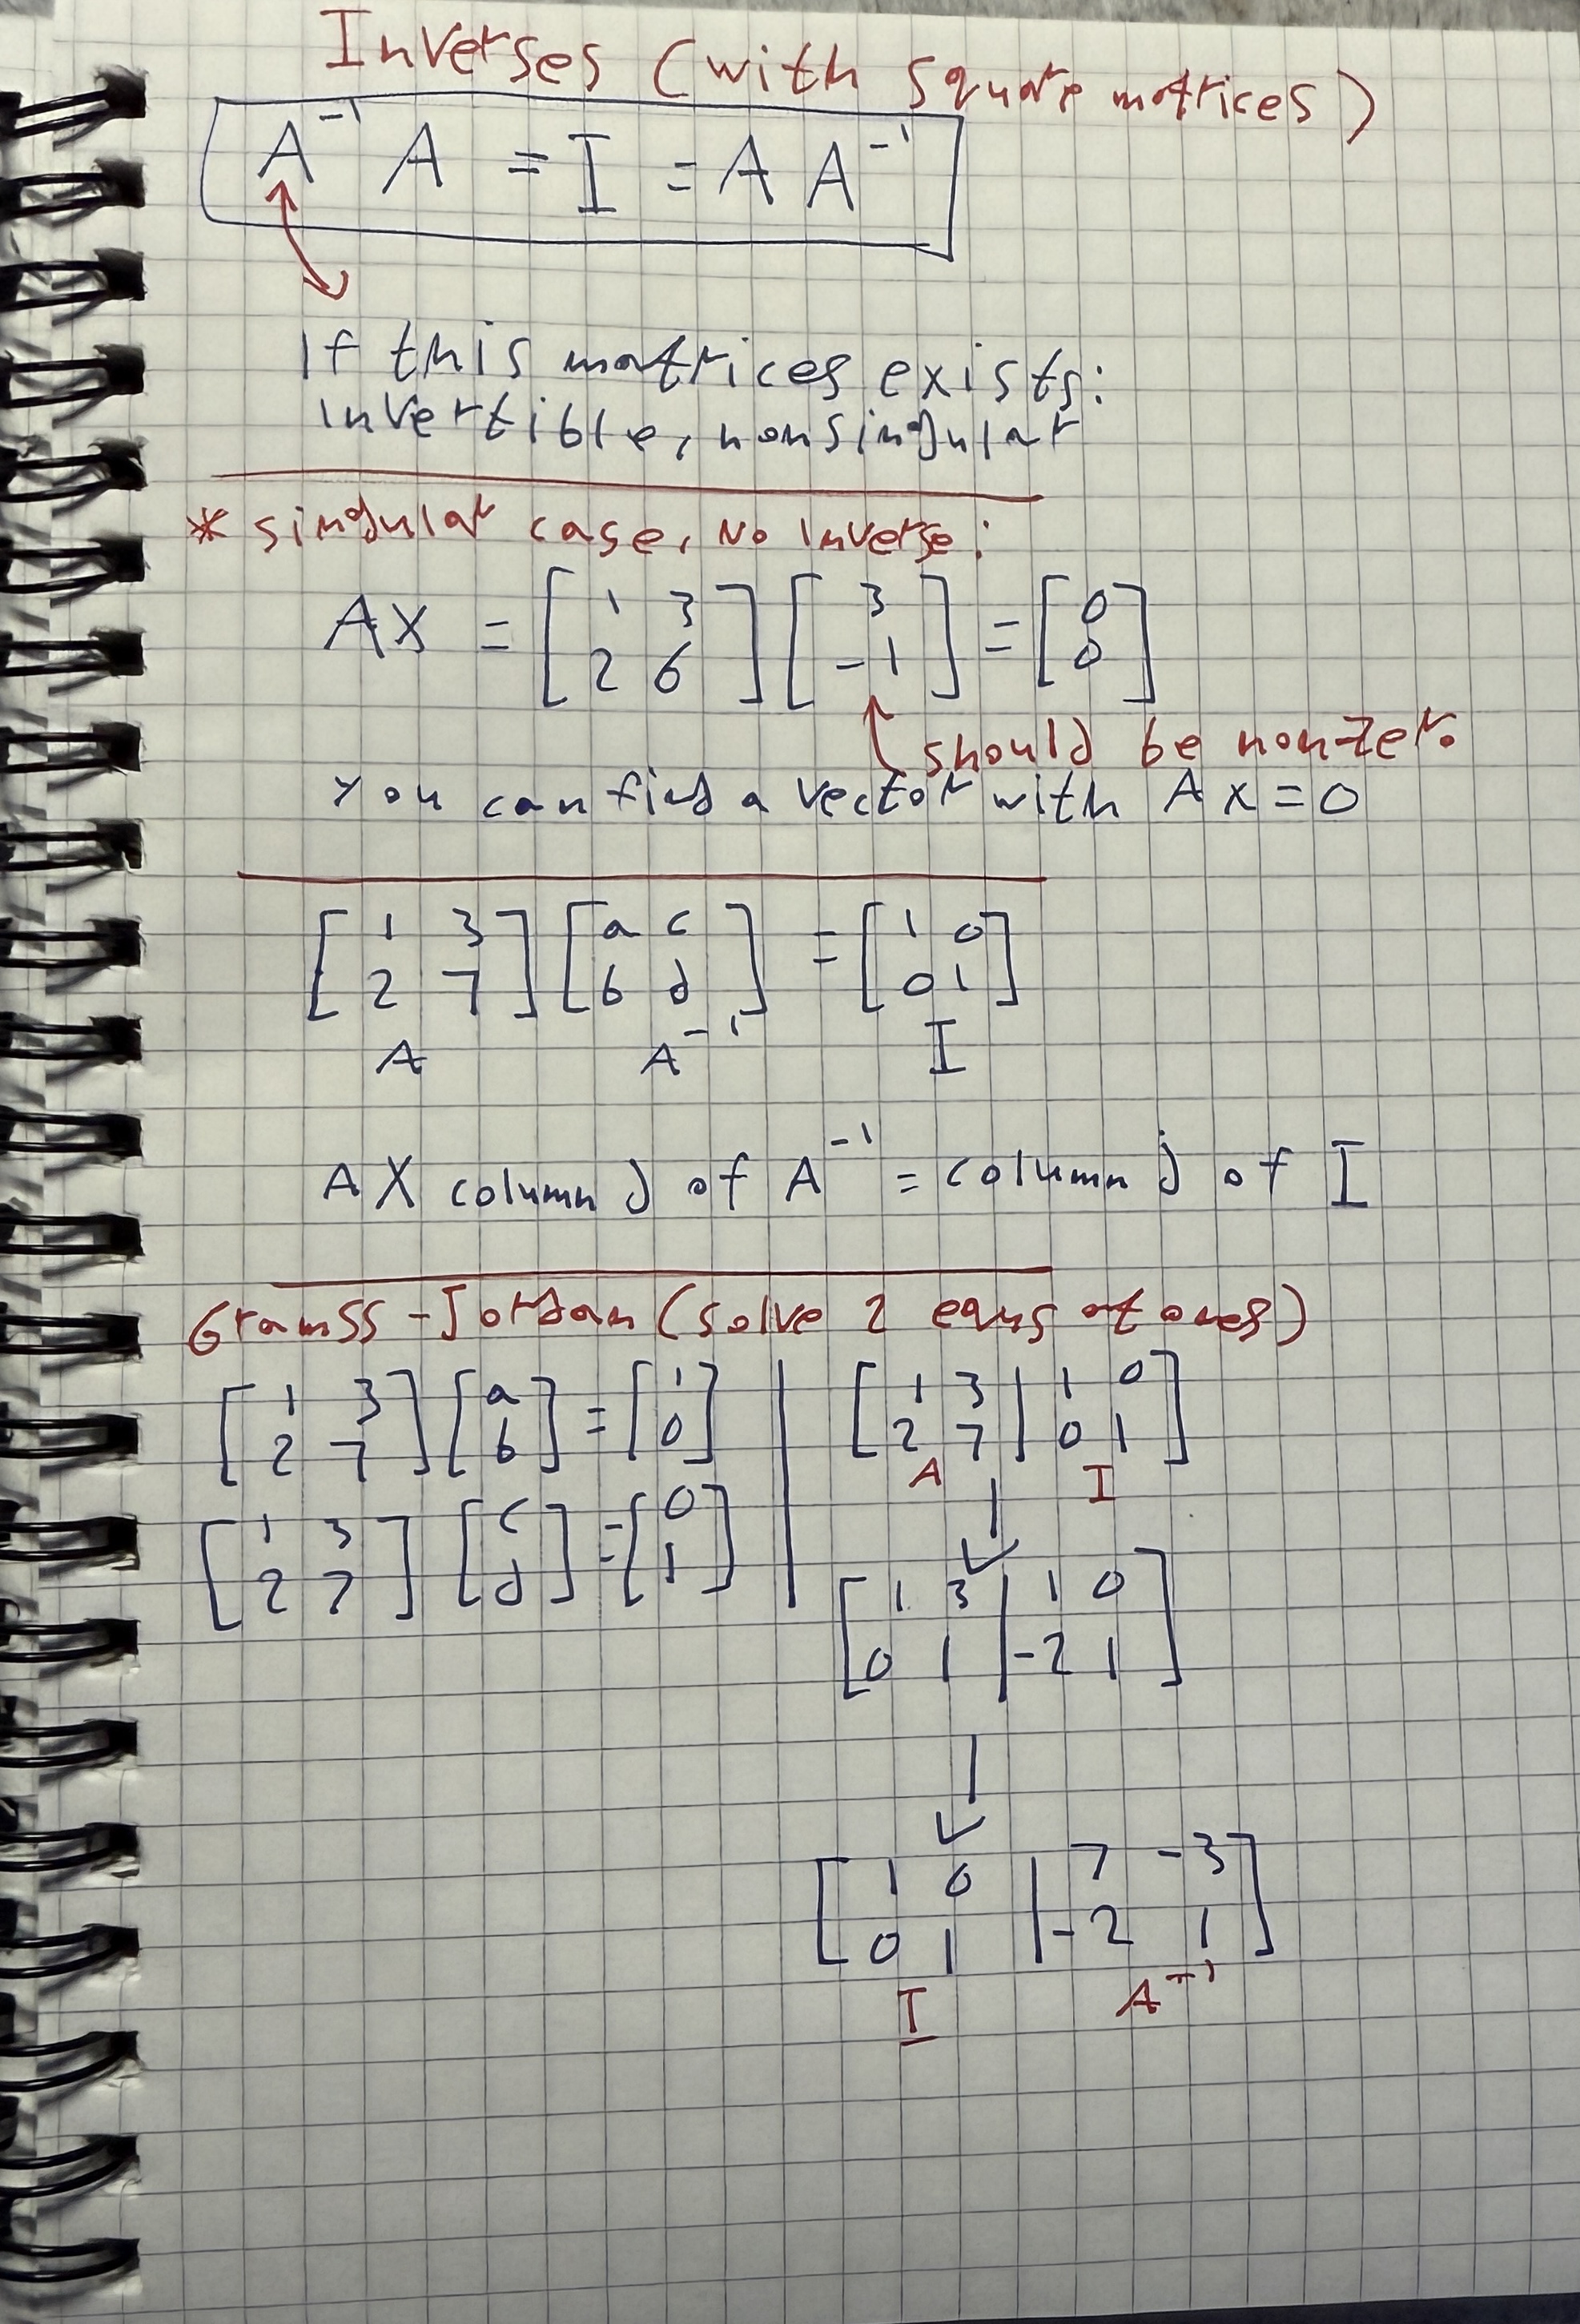 Inverses (with square matrices)
A⁻¹ A = I = A A⁻¹
If this matrices exists:
invertible, nonsingular
* singular case, No inverse:
AX = [1 3; 2 6] [3; -1] = [0; 0]
should be non-zer.
You can find a vector with Ax=0
[1 3; 2 7] [a c; b d] = [1 0; 0 1]
A A⁻¹ I
AX column j of A⁻¹ = column j of I
Grauss-Jordan (solve 2 eqns at ones)
[1 3; 2 7] [a; b] = [1; 0]
[1 3; 2 7] [c; d] = [0; 1]
[1 3 | 1 0; 2 7 | 0 1]
A I
[1 3 | 1 0; 0 1 | -2 1]
[1 0 | 7 -3; 0 1 | -2 1]
I A⁻¹